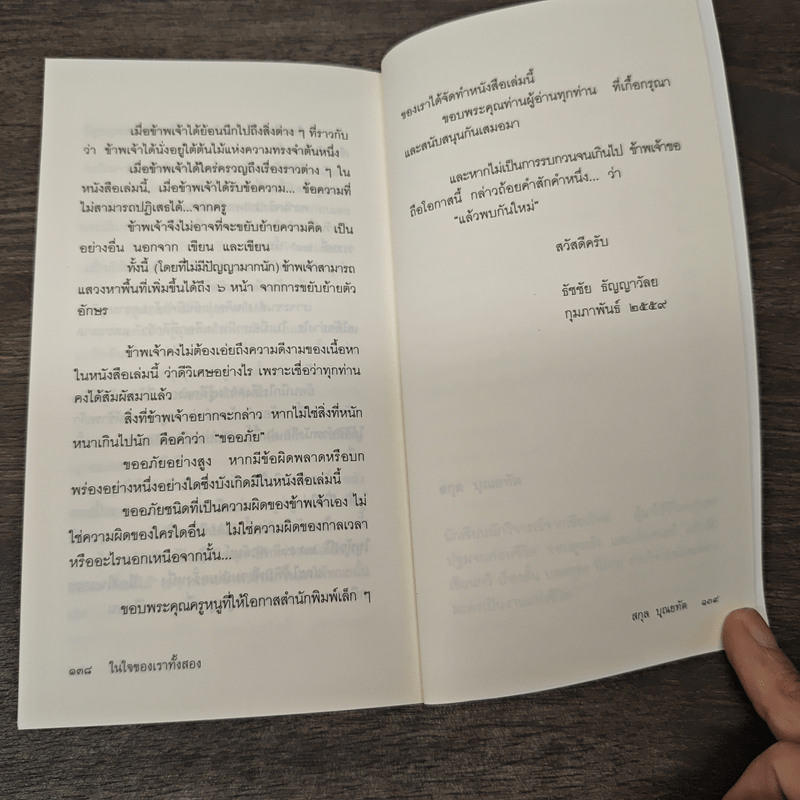 เมื่อข้าพเจ้าได้ย้อนนึกไปถึงสิ่งต่าง ๆ ที่ราวกับ
ว่า ข้าพเจ้าได้นั่งอยู่ใต้ต้นไม้แห่งความทรงจำต้นหนึ่ง
เมื่อข้าพเจ้าได้ใคร่ครวญถึงเรื่องราวต่าง ๆ ใน
หนังสือเล่มนี้, เมื่อข้าพเจ้าได้รับข้อความ... ข้อความที่
ไม่สามารถปฏิเสธได้...จากครู
ข้าพเจ้าจึงไม่อาจที่จะขยับย้ายความคิด เป็น
อย่างอื่น นอกจาก เขียน และเขียน
ทั้งนี้ (โดยที่ไม่มีปัญญามากนัก) ข้าพเจ้าสามารถ
แสวงหาพื้นที่เพิ่มขึ้นได้ถึง ๖ หน้า จากการขยับย้ายตัว
อักษร
ข้าพเจ้าคงไม่ต้องเอ่ยถึงความดีงามของเนื้อหา
ในหนังสือเล่มนี้ ว่าดีวิเศษอย่างไร เพราะเชื่อว่าทุกท่าน
คงได้สัมผัสมาแล้ว
สิ่งที่ข้าพเจ้าอยากจะกล่าว หากไม่ใช่สิ่งที่หนัก
หนาเกินไปนัก คือคำว่า "ขออภัย"
ขออภัยอย่างสูง หากมีข้อผิดพลาดหรือบก
พร่องอย่างหนึ่งอย่างใดซึ่งบังเกิดมีในหนังสือเล่มนี้
ขออภัยชนิดที่เป็นความผิดของข้าพเจ้าเอง ไม่
ใช่ความผิดของใครใดอื่น ไม่ใช่ความผิดของกาลเวลา
หรืออะไรนอกเหนือจากนั้น...
ขอบพระคุณครูหนูที่ให้โอกาสสำนักพิมพ์เล็ก ๆ
๑๓๘ ในใจของเราทั้งสอง
ของเราได้จัดทำหนังสือเล่มนี้
ขอบพระคุณท่านผู้อ่านทุกท่าน ที่เกื้อกรุณา
และสนับสนุนกันเสมอมา
และหากไม่เป็นการรบกวนจนเกินไป ข้าพเจ้าขอ
ถือโอกาสนี้ กล่าวถ้อยคำสักคำหนึ่ง... ว่า
"แล้วพบกันใหม่"
สวัสดีครับ
ธัชชัย ธัญญาวัลย
กุมภาพันธ์ ๒๕๕๙
สกุล บุณยทัต ๑๓๙